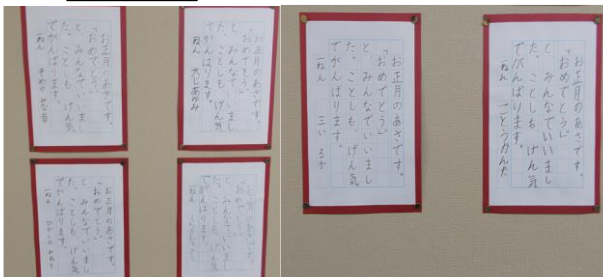 お正月のあさです。
「おめでとう」
と、みんなでいいまし
た。ことしも、げん気
でがんばります。
一ねん
お正月のあさです。
「おめでとう」
と、みんなでいいまし
た。ことしも、げん気
でがんばります。
一ねん
お正月のあさです。
「おめでとう」
と、みんなでいいまし
た。ことしも、げん気
でがんばります。
一ねん
お正月のあさです。
「おめでとう」
と、みんなでいいまし
た。ことしも、げん気
でがんばります。
一ねん
お正月のあさです。
「おめでとう」
と、みんなでいいまし
た。ことしも、げん気
でがんばります。
一ねん
お正月のあさです。
「おめでとう」
と、みんなでいいまし
た。ことしも、げん気
でがんばります。
一ねん